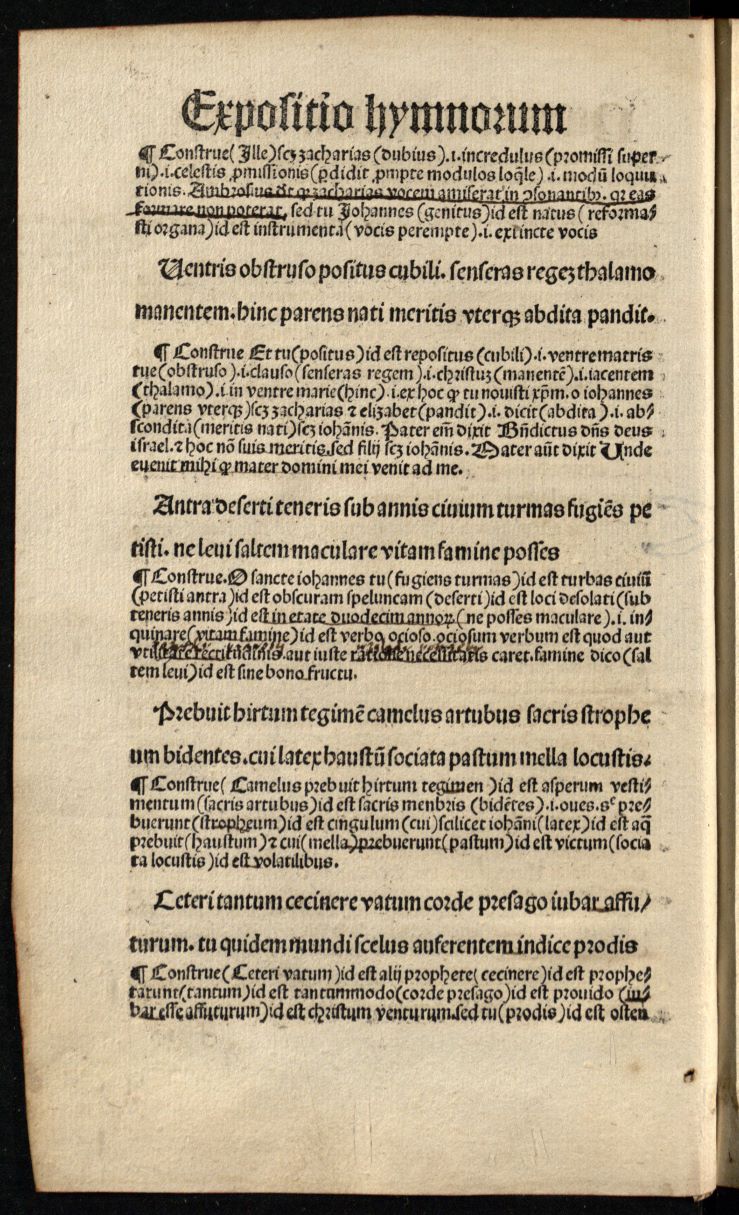 Expositio hymnorum
¶ Construe( Ille)scꝫ zacharias (dubius).i.incredulus (promissi super⸗
ni).i.celestis ꝓmissionis (ꝑdidit ꝓmpte modulos loq̄le).i.modū loquu
tionis. Ambrosius dt̄ ꝙ zacharias vocem amiserat in ↄsonantibꝫ. qr eas
formare non poterat. sed tu Johannes (genitus)id est natus (reforma⸗
sti organa)id est instrumenta (vocis perempte).i. extincte vocis
Uentris obstruso positus cubili. senseras regeꝫ thalamo
manentem. hinc parens nati meritis vterqꝫ abdita pandit.
¶ Construe Et tu(positus)id est repositus (cubili).i. ventre matris
tue(obstruso).i.clauso (senseras regem).i.christuꝫ (manentē).i.iacentem
(thalamo).i.in ventre marie(hinc).i.ex hoc ꝙ tu nouisti xp̄m. o iohannes
(parens vterqꝫ)scꝫ zacharias ⁊ elizabet (pandit).i. dicit(abdita).i. ab⸗
scondita (meritis nati)scꝫ iohānis. Pater em̄ dixit Bn̄dictus dn̄s deus
israel. ⁊ hoc nō suis meritis, sed filij scꝫ iohānis. Mater aūt dixit Unde
euenit mihi ꝙ mater domini mei venit ad me.
Antra deserti teneris sub annis ciuium turmas fugiēs pe
tisti. ne leui saltem maculare vitam famine posses
¶ Construe. O sancte iohannes tu (fugiens turmas)id est turbas ciuiū
(petisti antra)id est obscuram speluncam (deserti)id est loci desolati (sub
teneris annis)id est in etate duodecim annoꝝ (ne posses maculare).i. in⸗
quinare (vitam famine)id est verbo ocioso. ociosum verbum est quod aut
vtilitate rectitudinis. aut iuste ratione necessitatis caret. famine dico (sal
tem leui)id est sine bono fructu.
Prebuit hirtum tegimē camelus artubus sacris strophe
um bidentes. cui latex haustū sociata pastum mella locustis.
¶ Construe( Camelus prebuit hirtum tegimen )id est asperum vesti⸗
mentum (sacris artubus)id est sacris menbris (bidētes).i.oues. sᶜ pre⸗
buerunt (stropheum)id est cingulum (cui)scilicet iohāni(latex)id est aq̄
prebuit(haustum)⁊ cui(mella)prebuerunt(pastum)id est victum(socia
ta locustis)id est volatilibus.
Ceteri tantum cecinere vatum corde presago iubar affu⸗
turum. tu quidem mundi scelus auferentem indice prodis
¶ Construe (Ceteri vatum)id est alij prophete( cecinere)id est prophe⸗
tarunt(tantum)id est tantummodo(corde presago)id est prouido (iu⸗
bar esse affuturum)id est christum venturum. sed tu (prodis)id est osten